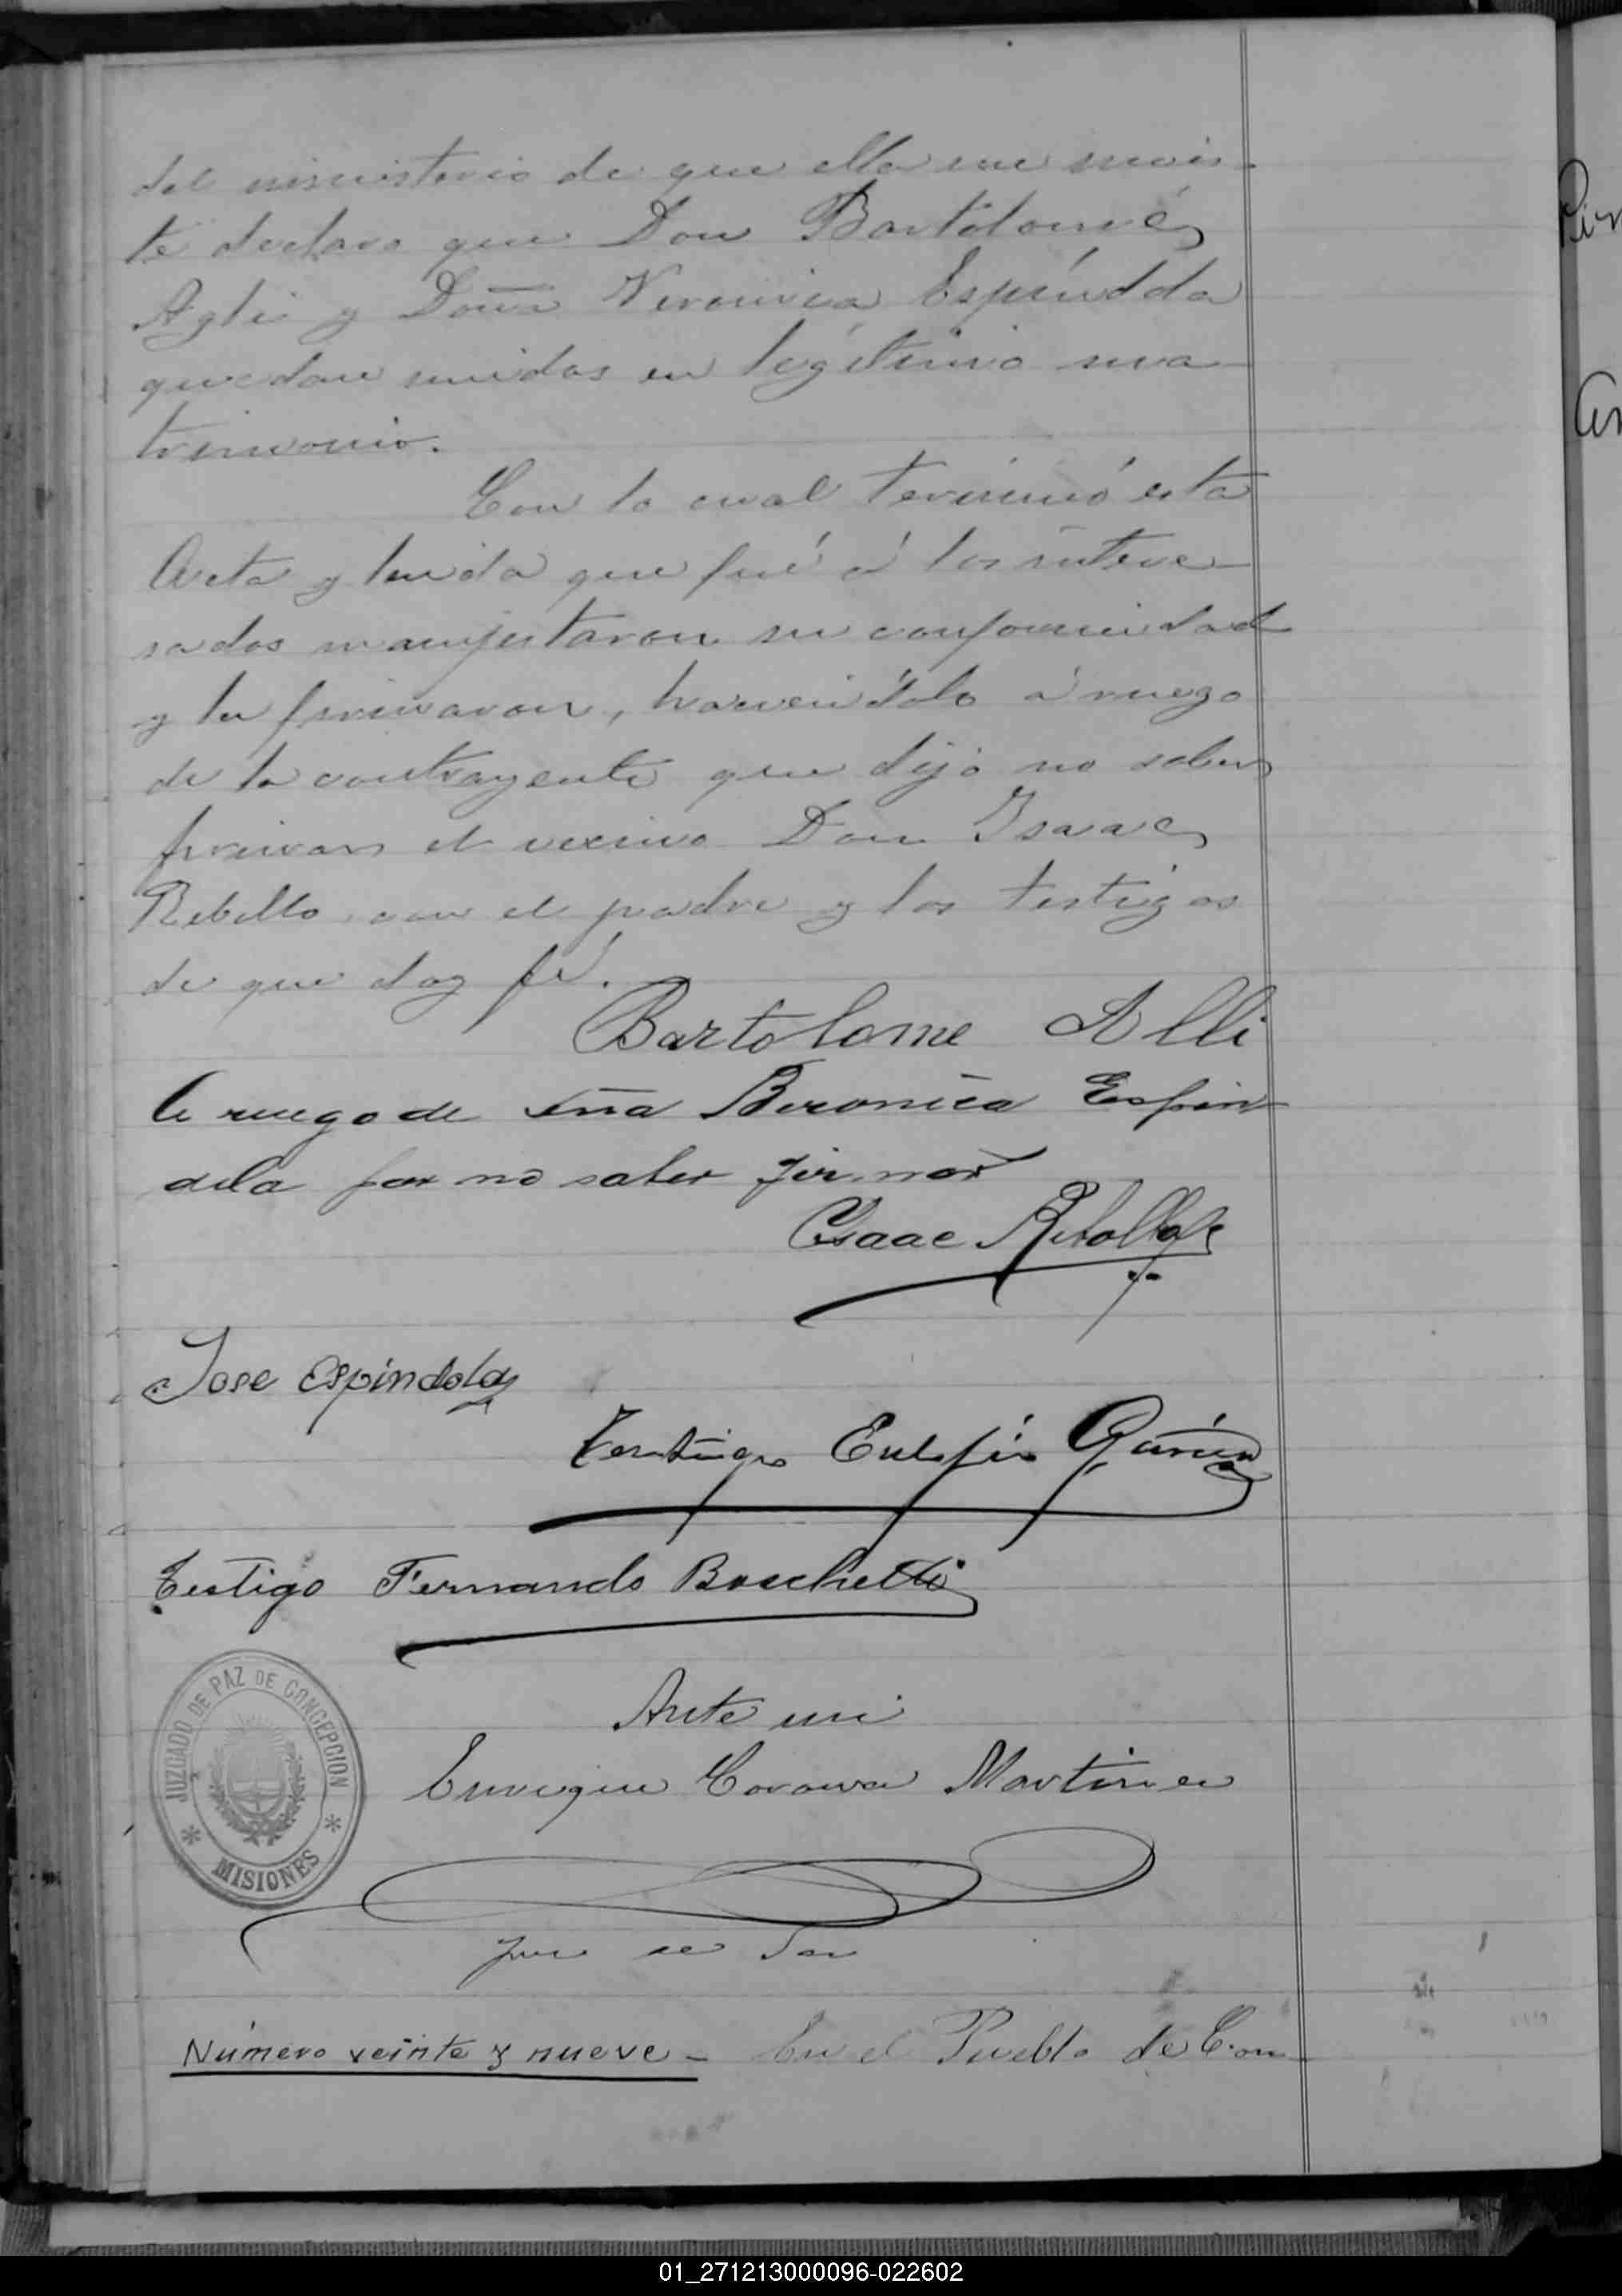 del ministerio de que ella me invis-
te declaro que Don Bartolomé
Aglí y Doña Veronica Espíndola
quedan unidos en legítimo ma-
trimonio.
Con lo cual terminó esta
Acta y leida que fué á los intere-
sados manifestaron su conformidad
y la firmaron, haciendolo á ruego
de la contrayente que dijo no saber
firmar el vecino Don Isaac
Rebollo, con el padre y los testigos
de que doy fé.
Bartolome Alli
A ruego de Beronica Espin
dola por no saber firmar
Isaac Rebollo
Jose Espindola
Testigo García
Testigo Fernando Boschetti
JUZGADO DE PAZ DE CONCEPCION
MISIONES
Ante mi
Enrique Corona Martinez
Juez de Paz
Número veinte y nueve - En el Pueblo de Con-
Pri
01_271213000096-022602